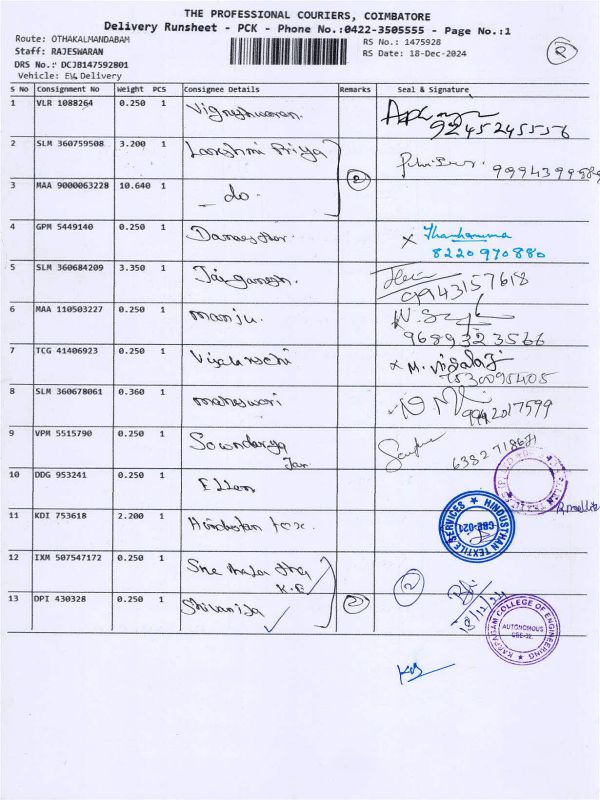 THE PROFESSIONAL COURIERS, COIMBATORE
Delivery Runsheet - PCK - Phone No.:0422-3505555 - Page No.:1
Route: OTHAKALMANDABAM
RS No.: 1475928
Staff: RAJESWARAN
RS Date: 18-Dec-2024
DRS No.: DCJB147592801
Vehicle: EV Delivery
S No Consignment No Weight PCS Consignee Details Remarks Seal & Signature
1 VLR 1088264 0.250 1 Vigneshwaran
9245245556
2 SLM 360759508 3.200 1 Lakshmi Priya
2
3 MAA 9000063228 10.640 1 - do -
4 GPM 5449140 0.250 1
8220970880
5 SLM 360684209 3.350 1 Jaiganesh
09943157618
6 MAA 110503227 0.250 1 manju
9689323566
7 TCG 41406923 0.250 1
8 SLM 360678061 0.360 1 maheswari
9 VPM 5515790 0.250 1 Sowndarya
6382718671
10 DDG 953241 0.250 1 Ellen
11 KDI 753618 2.200 1 Hindustan tex
HINDUSTHAN TEXTILE SERVICES
CBE-021
12 IXM 507547172 0.250 1
K.E
2
13 DPI 430328 0.250 1
2
18/12/24
KARPAGAM COLLEGE OF ENGINEERING
AUTONOMOUS
CBE-32